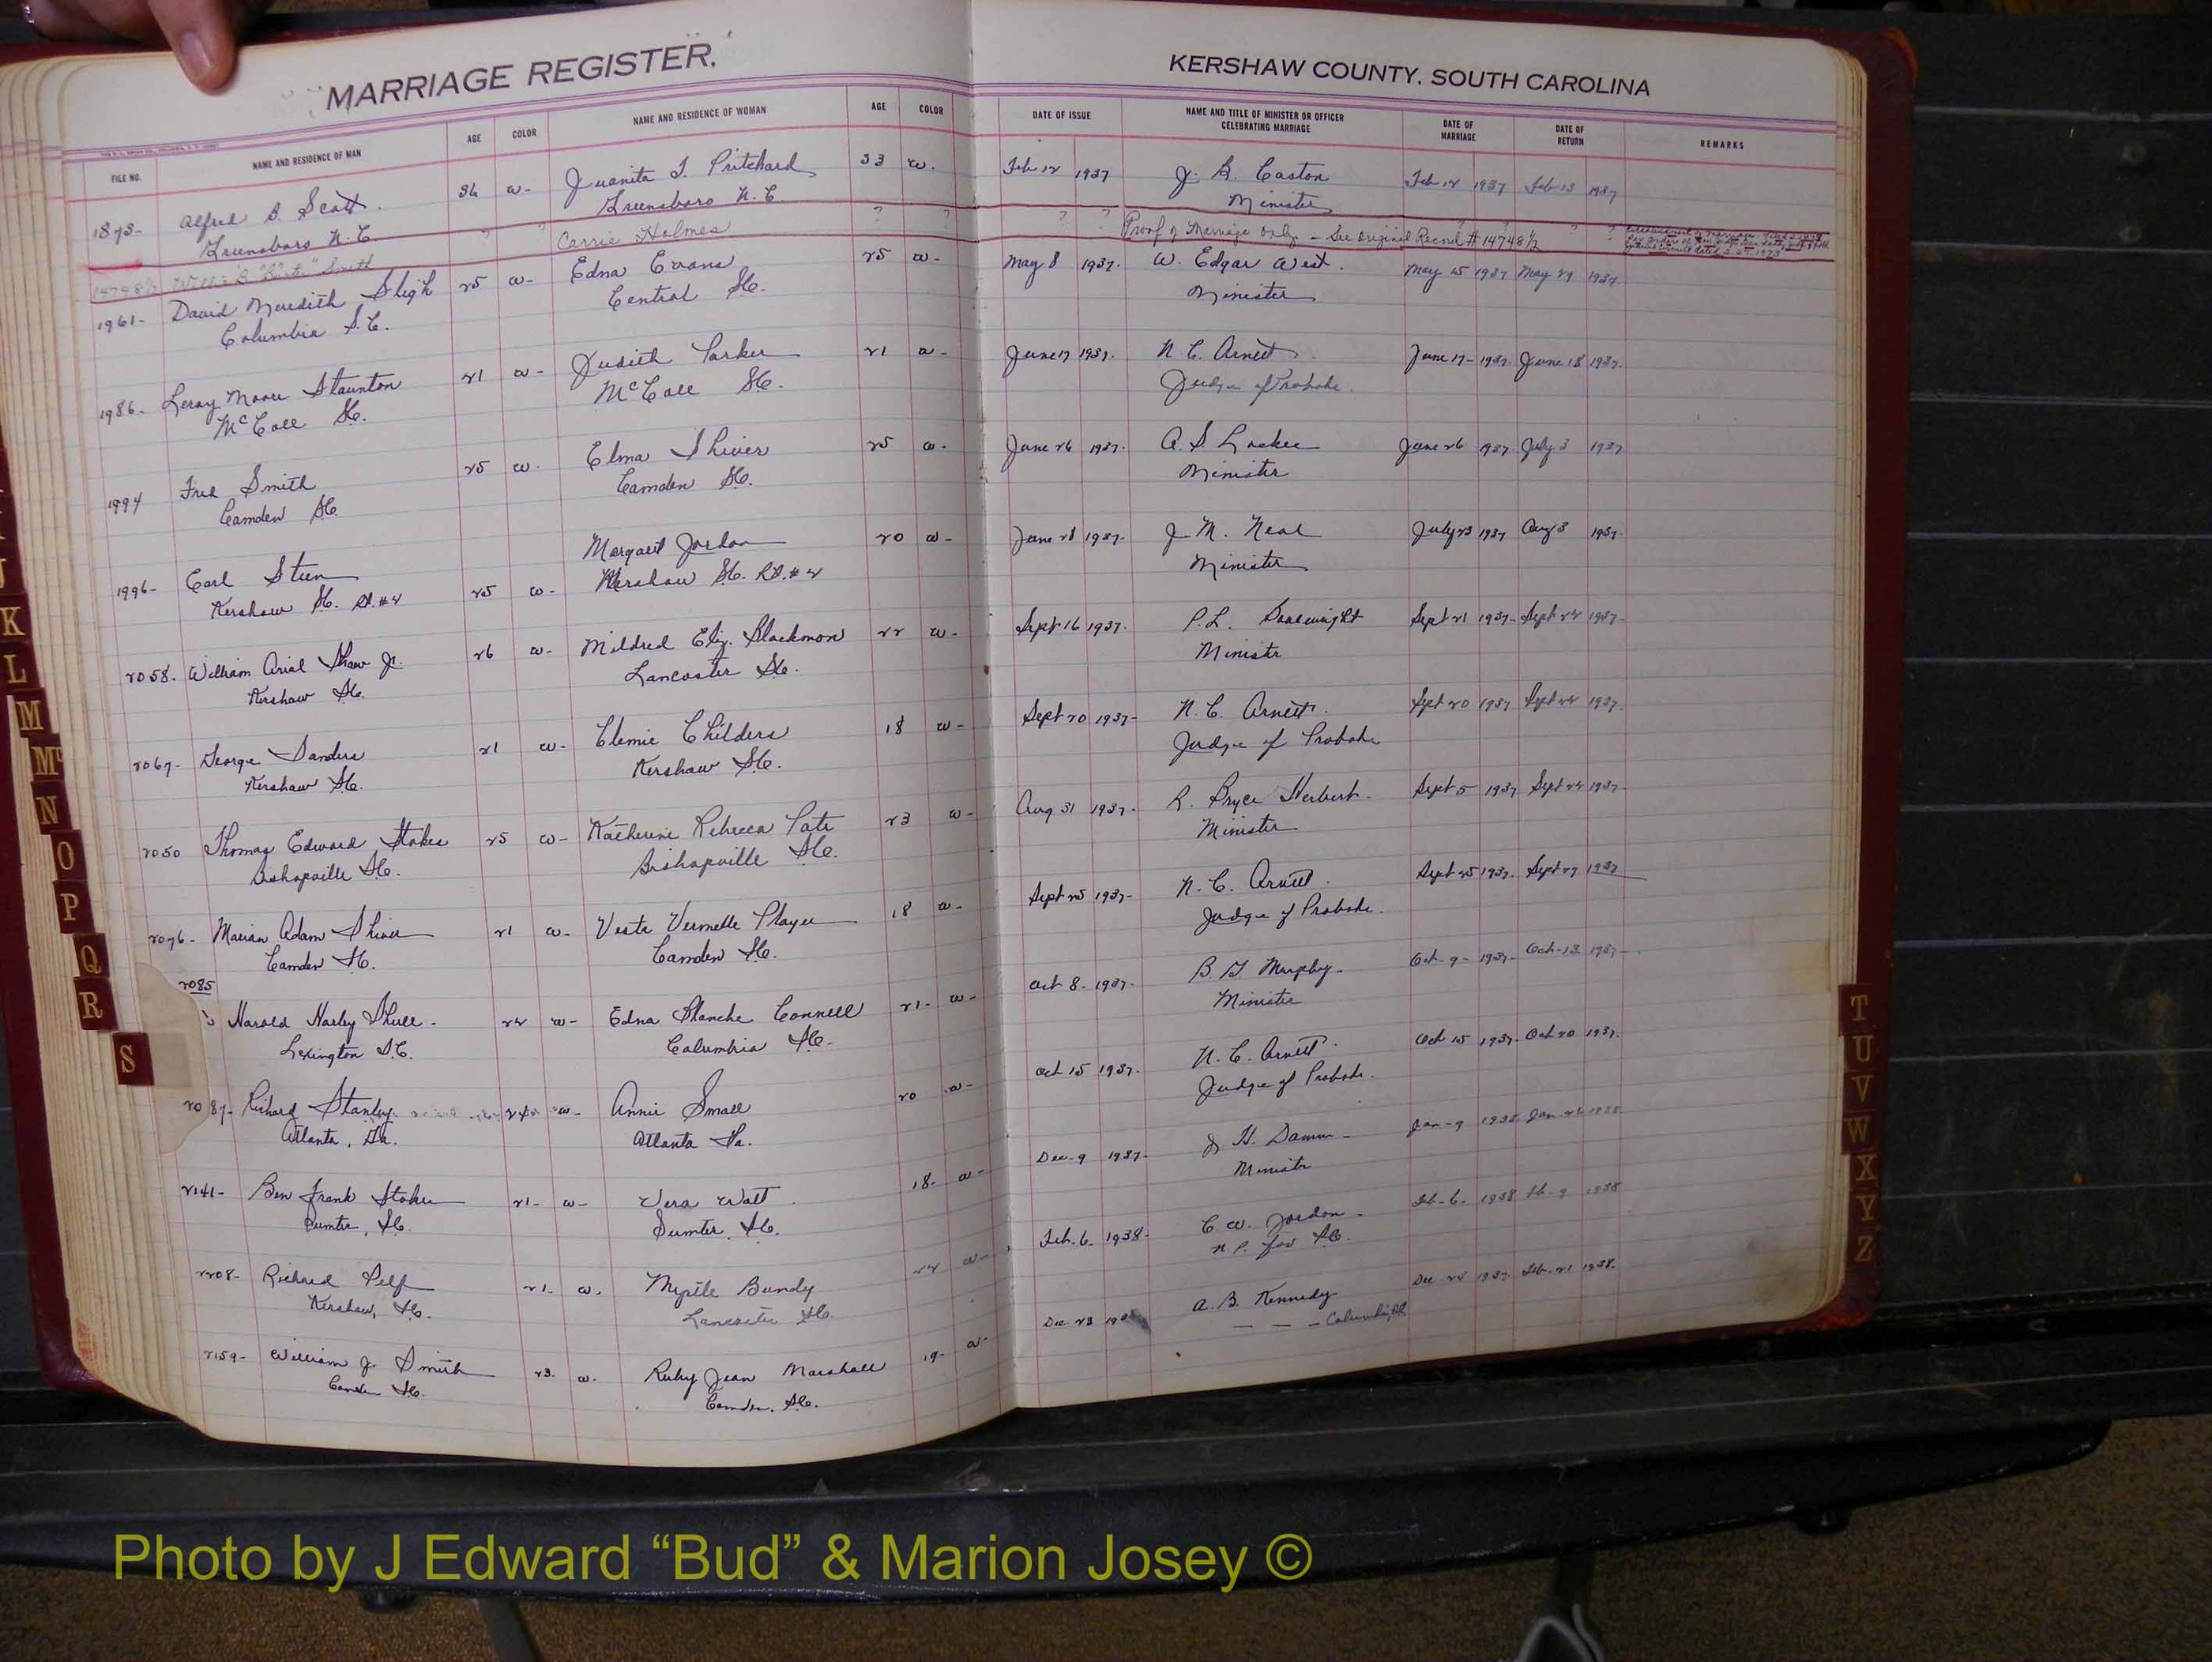 MARRIAGE REGISTER.
KERSHAW COUNTY, SOUTH CAROLINA
FILE NO. NAME AND RESIDENCE OF MAN AGE COLOR NAME AND RESIDENCE OF WOMAN AGE COLOR DATE OF ISSUE NAME AND TITLE OF MINISTER OR OFFICER CELEBRATING MARRIAGE DATE OF MARRIAGE DATE OF RETURN REMARKS
1873- Alfred B. Scott 36 w- Juanita T. Pritchard 33 w. Feb 12 1937 J. B. Caston Feb 12 1937 Feb 13 1937
Greensboro N.C Greensboro N.C Minister
14748½ Willie B Smith ? ? Carrie Holmes ? ? ? ? Proof of Marriage only - See original Record # 14748½ ? ? ? ?
1961- David Meredith Sligh 25 w- Edna Evans 25 w- May 8 1937. W. Edgar West. May 15 1937 May 29 1937
Columbia S.C. Central SC. Minister
1986- Leroy Moore Staunton 21 w- Judith Parker 21 w- June 17 1937. N. C. Arnett June 17- 1937. June 18 1937.
McColl SC. McColl SC. Judge of Probate.
1994 Fred Smith 25 w. Elma Shiver 25 w- June 26 1937. A. S. June 26 1937. July 3 1937
Camden SC. Camden SC. Minister
1996- Earl Steen 25 w- Margaret Jordan 20 w- June 28 1937- J. M. Neal July 23 1937 Aug 3 1937.
Kershaw SC. Rt. #2 Kershaw SC. Rt. #2 Minister
2058. William Arial Shaw Jr. 26 w- Mildred Eliz. Blackmon 22 w- Sept 16 1937. P. L. Boatwright Sept 21 1937- Sept 22 1937-
Kershaw SC. Lancaster SC. Minister
2067- George Sanders 21 w- Clemie Childers 18 w- Sept 20 1937- N. C. Arnett. Sept 20 1937 Sept 22 1937.
Kershaw SC. Kershaw SC. Judge of Probate
2050 Thomas Edward Stokes 25 w- Katherine Rebecca Pate 23 w- Aug 31 1937. R. Bryce Herbert. Sept 5 1937 Sept 22 1937-
Bishopville SC. Bishopville SC. Minister
2076- Marian Adam Shiver 21 w- Vesta Vermelle Player 18 w- Sept 25 1937- N. C. Arnett. Sept 25 1937. Sept 27 1937
Camden SC. Camden SC. Judge of Probate.
2085 Harold Harley Shull- 22 w- Edna Blanche Connell 21- w- Oct 8- 1937- B. Murphy- Oct-9- 1937- Oct-13 1937-
Lexington S.C. Columbia SC- Minister
2087- Richard Stanley w- Annie Small 20 w- Oct 15 1937. N. C. Arnett. Oct 15 1937- Oct 20 1937.
Atlanta, Ga. Atlanta Ga. Judge of Probate.
2141- Ben Frank Stokes 21- w- Vera Watt 18- w- Dec-9 1937- H. Jan-9 1938 Jan-26 1938
Sumter, SC. Sumter, SC. Minister
2208- Richard Self 21- w. Myrtle Bundy 22 w- Feb. 6 1938- C. W. Jordon- Feb-6- 1938 Feb-9 1938
Kershaw, SC. Lancaster SC. N. P. for SC.
2159- William J. Smith 23. w. Ruby Jean Marshall 19- w- Dec 23 A. B. Kennedy Dec 24 1937 Feb-21 1938.
Camden SC. Camden, SC. — — — Columbia
K
L
M
Mc
N
O
P
Q
R
S
T
U
V
W
X
Y
Z
Photo by J Edward “Bud” & Marion Josey ©